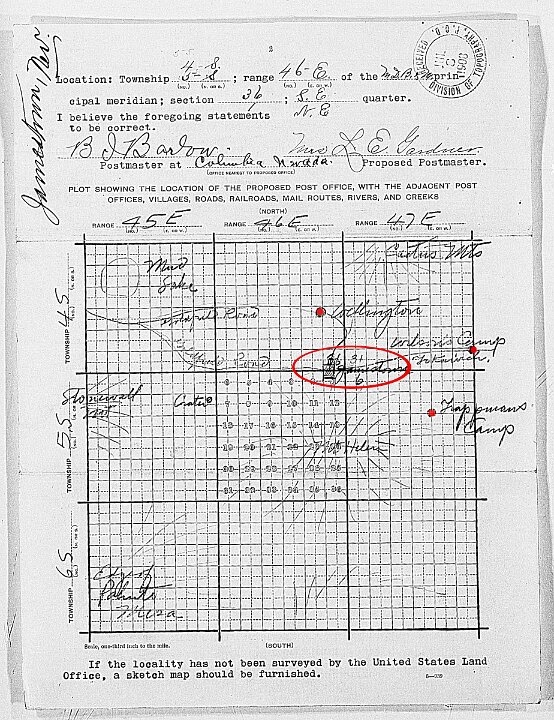 Jamestown, Nev.
RECEIVED P.O.D.
DIVISION OF TOPOGRAPHY
2
4 S.
Location: Township 5-S ; range 46-E. of the M.D.B.&M prin-
(NO.) (N. OR S.) (NO.) (E. OR W.)
cipal meridian; section 36 ; S.E quarter.
1 N.E
I believe the foregoing statements
to be correct.
B J Barlow. Mrs L. E. Gardner.
Postmaster at Columbia Nevada. Proposed Postmaster.
(OFFICE NEAREST TO PROPOSED OFFICE)
PLOT SHOWING THE LOCATION OF THE PROPOSED POST OFFICE, WITH THE ADJACENT POST
OFFICES, VILLAGES, ROADS, RAILROADS, MAIL ROUTES, RIVERS, AND CREEKS
(NORTH)
RANGE 45 E RANGE 46 E RANGE 47 E
(NO.) (E. OR W.) (NO.) (E. OR W.) (NO.) (E. OR W.)
Cactus Mts
Mud
Lake
Road
Wellington
TOWNSHIP 4 S
(N. OR S.)
Wilsons Camp
Road
36 31
Jamestown
6
Stonewall
Mt
Crater
Trappmans
Camp
TOWNSHIP 5 S
(N. OR S.)
6 5 4 3 2 1
7 8 9 10 11 12
18 17 16 15 14 13
19 20 21 22 23 24
Mt Helen
30 29 28 27 26 25
31 32 33 34 35 36
TOWNSHIP 6 S
(N. OR S.)
Edge of
Pahute
Mesa
Scale, one-third inch to the mile. (SOUTH)
If the locality has not been surveyed by the United States Land
Office, a sketch map should be furnished.